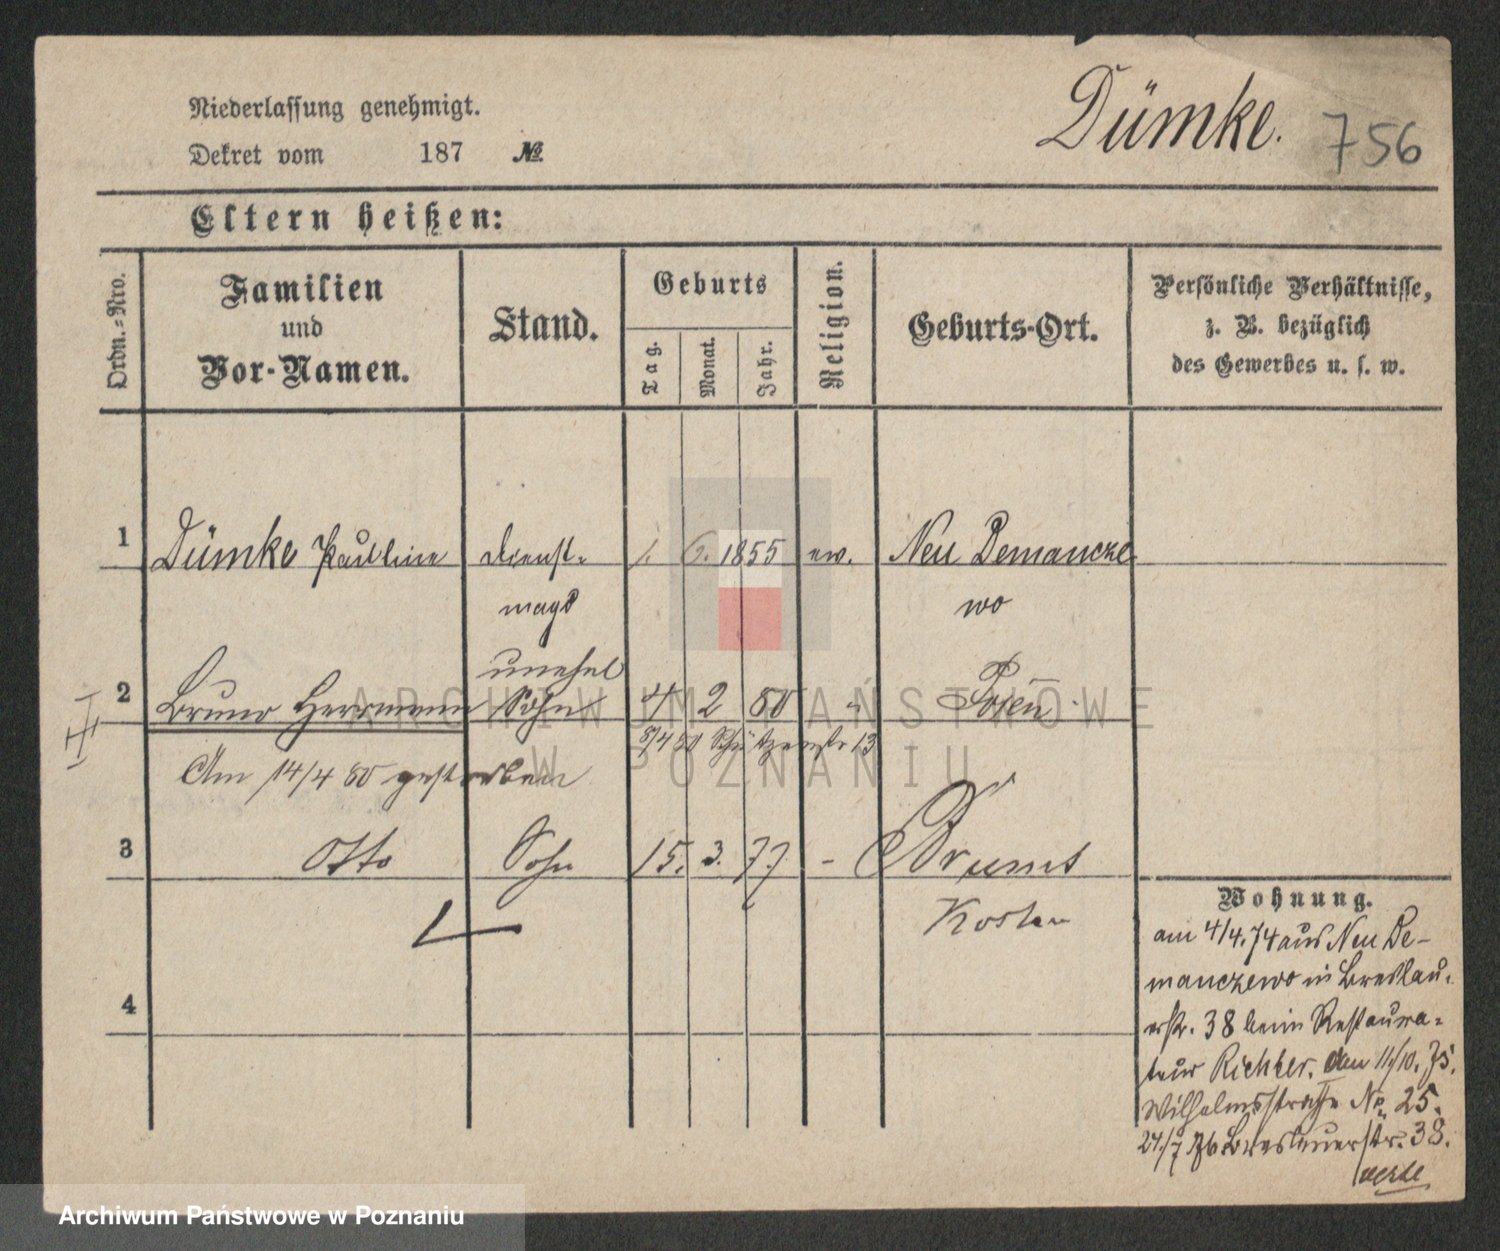 Niederlassung genehmigt.
Dekret vom 187 №
Dümke. 756
Eltern heißen:
Ordn.-Nro.
Familien
und
Vor-Namen.
Stand.
Geburts
Tag.
Monat.
Jahr.
Religion.
Geburts-Ort.
Persönliche Verhältnisse,
z. B. bezüglich
des Gewerbes u. s. w.
1 Dümke Paulline Dienst- 1. 6. 1855 ev. Neu Demancze
magd wo
unehel
2 Bruno Herrmann Sohn 4 2 80 " Posen
II
8/4 80 Schützenstr 13
Am 14/4 80 gestorben
3 Otto Sohn 15. 3. 77 -
Kosten
4
Wohnung.
am 4/4. 74 aus Neu De-
manczewo in Breslau-
erstr. 38 beim Restaura-
teur Richter. Am 11/10. 75.
Wilhelmsstraße No 25.
24/7 76 Breslauerstr. 38.
ARCHIWUM PAŃSTWOWE
W POZNANIU
Archiwum Państwowe w Poznaniu